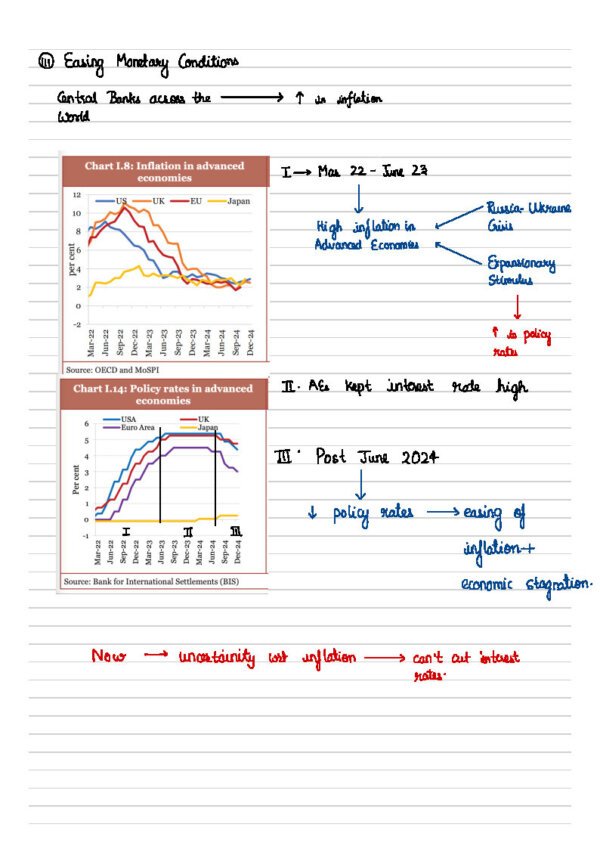 III Easing Monetary Conditions
Central Banks across the → ↑ in inflation
World
Chart I.8: Inflation in advanced
economies
US UK EU Japan
per cent
12
10
8
6
4
2
0
-2
Mar-22
Jun-22
Sep-22
Dec-22
Mar-23
Jun-23
Sep-23
Dec-23
Mar-24
Jun-24
Sep-24
Dec-24
Source: OECD and MoSPI
I → Mar 22 - June 23
High inflation in
Advanced Economies
Russia-Ukraine
Crisis
Expansionary
Stimulus
↑ in policy
rates
Chart I.14: Policy rates in advanced
economies
USA UK
Euro Area Japan
Per cent
6
5
4
3
2
1
0
-1
I II III
Mar-22
Jun-22
Sep-22
Dec-22
Mar-23
Jun-23
Sep-23
Dec-23
Mar-24
Jun-24
Sep-24
Dec-24
Source: Bank for International Settlements (BIS)
II. AEs kept interest rate high
III. Post June 2024
↓ policy rates → easing of
inflation +
economic stagnation.
Now → uncertainity wrt inflation → can't cut interest
rates.